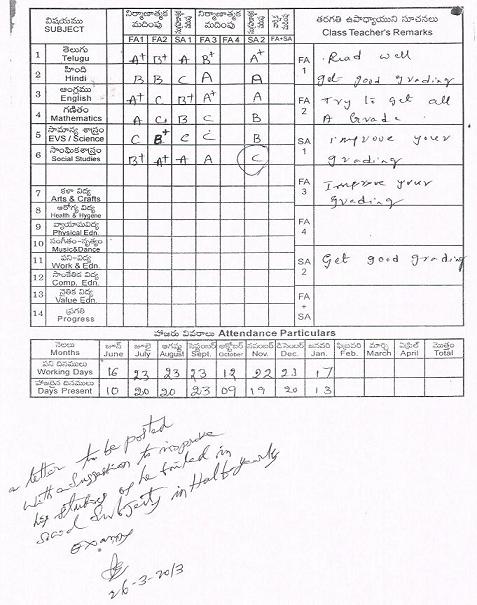 విషయము
SUBJECT
నిర్మాణాత్మక మదింపు
నిర్మాణాత్మక మదింపు
తరగతి ఉపాధ్యాయుని సూచనలు
Class Teacher's Remarks
FA1 FA2 SA1 FA3 FA4 SA2 FA+SA
1 తెలుగు Telugu A+ B+ A B+ A+
FA 1 Read well
get good grading
2 హింది Hindi B B C A A
3 ఆంగ్లము English A+ C B+ A+ A
FA 2 Try to get all
A Grade.
4 గణితం Mathematics A C B C B
5 సామాన్య శాస్త్రం EVS / Science C B+ C C B
SA 1 improve your
grading
6 సాంఘికశాస్త్రం Social Studies B+ A+ A A C
FA 3 Improve your
grading
7 కళా విద్య Arts & Crafts
8 ఆరోగ్య విద్య Health & Hygene
FA 4
9 వ్యాయామవిద్య Physical Edn.
10 సంగీతం-నృత్యం Music&Dance
11 పని-విద్య Work & Edn.
SA 2 Get good grading
12 సాంకేతిక విద్య Comp. Edn.
13 నైతిక విద్య Value Edn.
FA + SA
14 ప్రగతి Progress
హాజరు వివరాలు Attendance Particulars
నెలలు జూన్ జూలై ఆగష్టు సెప్టెంబర్ అక్టోబర్ నవంబర్ డిసెంబర్ జనవరి ఫిబ్రవరి మార్చి ఏప్రిల్ మొత్తం
Months June July August Sept. October Nov. Dec. Jan. Feb. March April Total
పని దినములు
Working Days 16 23 23 23 12 22 23 17
హాజరైన దినములు
Days Present 10 20 20 23 09 19 20 13
a letter to be posted
with a suggestion to improve
his studies of he failed in
Social Subjects in Halfyearly
Exams
26-3-2013